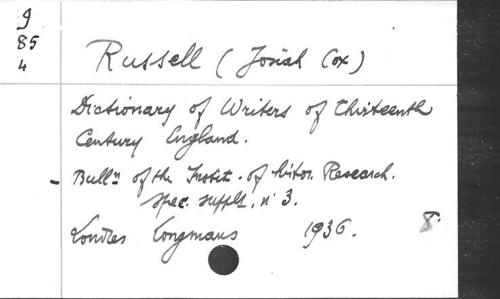 9
85
4
Russell (Josiah Cox)
Dictionary of Writers of Thirteenth
Century England.
- Bull^n of the Instit. of histor. Research.
spec. supplt. n° 3.
Londres Longmans 1936. 8°